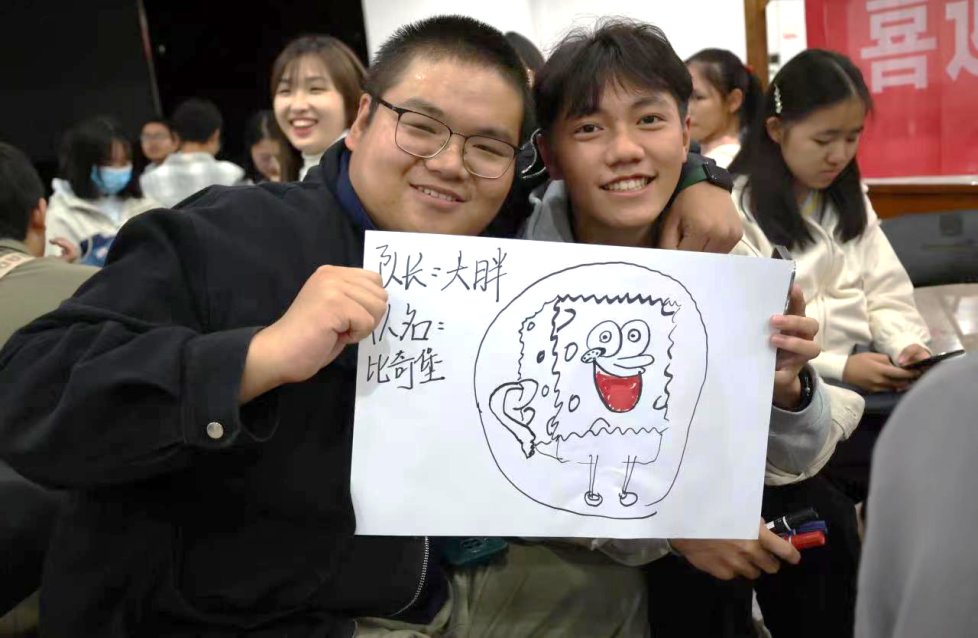 队长=大胖
队名=
比奇堡
喜迎